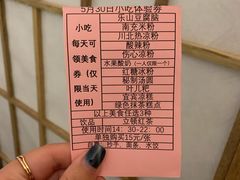 5月30日小吃体验券
小吃
每天可
领美食
券(仅
限当天
使用)
乐山豆腐脑
南充米粉
川北热凉粉
酸辣粉
伤心凉粉
水果酸奶(一人仅限一个)
红糖冰粉
秘制汤圆
叶儿粑
宜宾凉糕
绿色抹茶糕点
以上美食任选3种
饮品
立顿红茶
使用时间14:30-22:00
单独购买15元/张